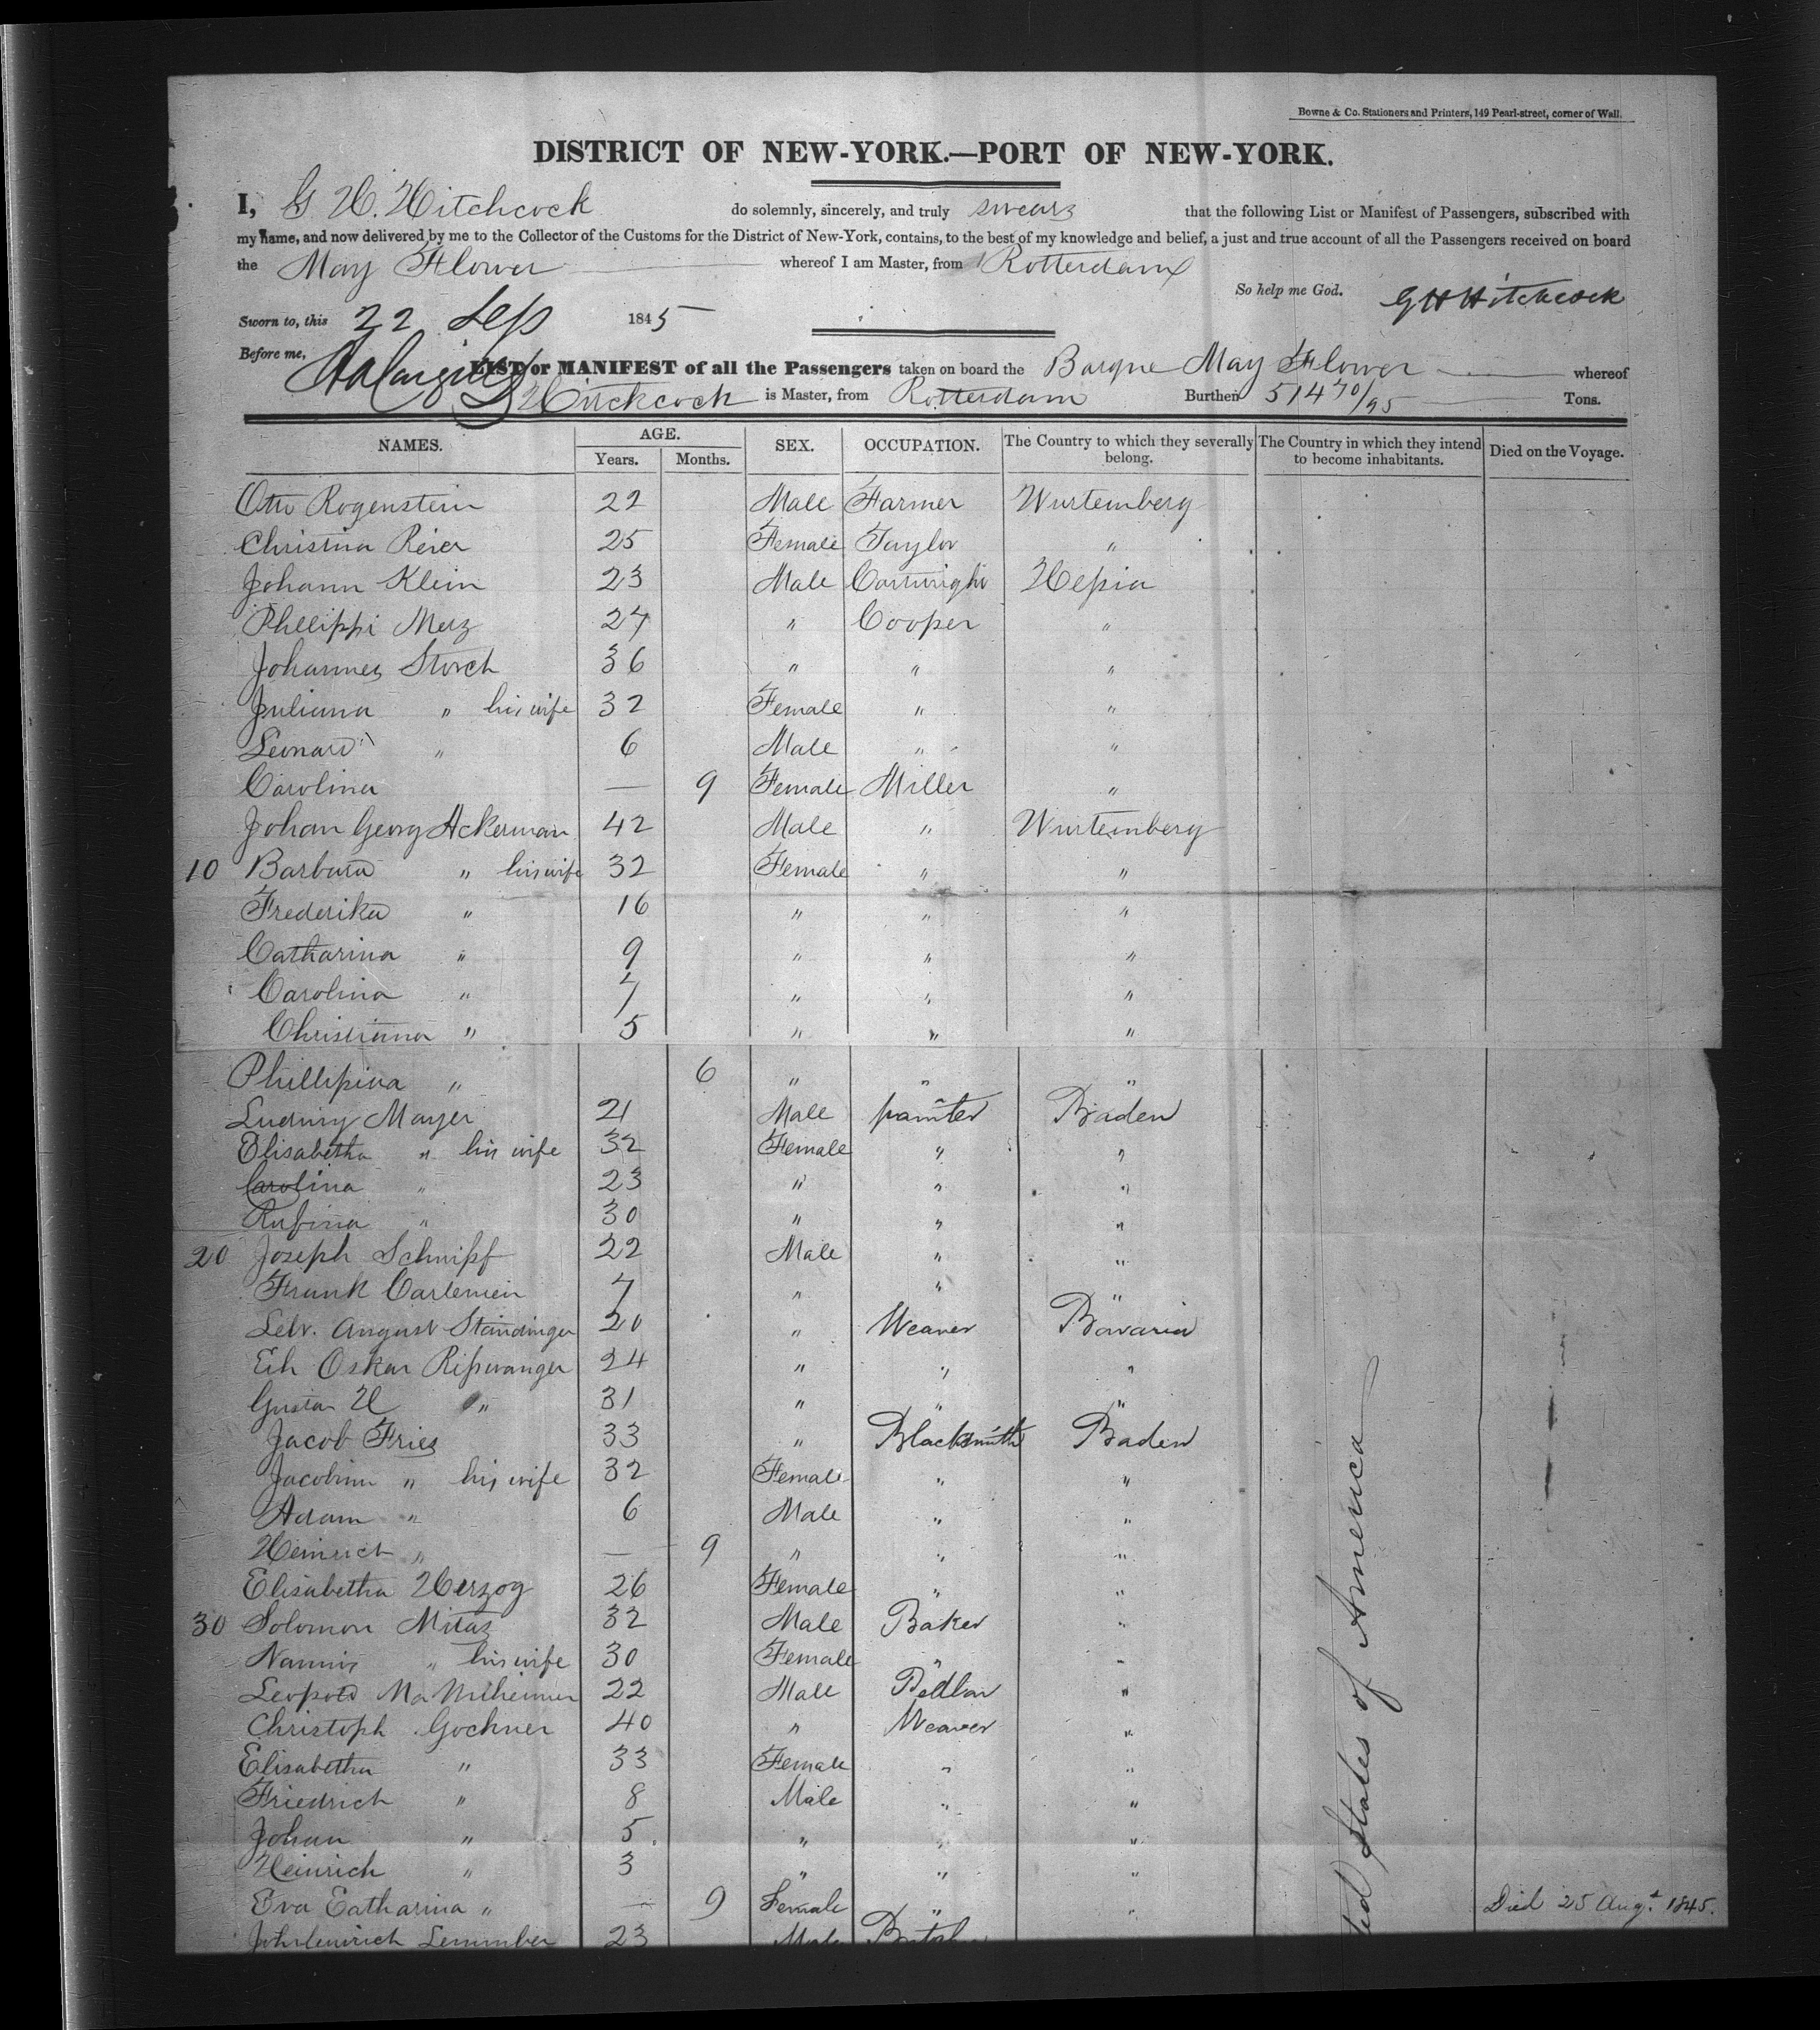 Bowne & Co. Stationers and Printers, 149 Pearl-street, corner of Wall.
DISTRICT OF NEW-YORK.—PORT OF NEW-YORK.
I, G. H. Hitchcock do solemnly, sincerely, and truly swear that the following List or Manifest of Passengers, subscribed with
my name, and now delivered by me to the Collector of the Customs for the District of New-York, contains, to the best of my knowledge and belief, a just and true account of all the Passengers received on board
the May Flower whereof I am Master, from Rotterdam
So help me God. G H Hitchcock
Sworn to, this 22 Sep 1845
Before me,
LIST or MANIFEST of all the Passengers taken on board the Barque May Flower whereof
Hitchcock is Master, from Rotterdam Burthen 514 70/95 Tons.
NAMES. AGE. Years. Months. SEX. OCCUPATION. The Country to which they severally belong. The Country in which they intend to become inhabitants. Died on the Voyage.
Otto Rogenstein 22 Male Farmer Wurtemberg
Christina Reier 25 Female Taylor "
Johann Klein 23 Male Cartwright Heßia
Phillippi Merz 27 " Cooper "
Johannes Storch 36 " " "
Juliana " his wife 32 Female " "
Leonard " 6 Male " "
Carolina — 9 Female Miller "
Johan Georg Ackerman 42 Male " Wurtemberg
10 Barbara " his wife 32 Female " "
Frederika " 16 " " "
Catharina " 9 " " "
Carolina " 7 " " "
Christianna " 5 " " "
Phillipina " 6 " " "
Ludwig Mayer 21 Male painter Baden
Elisabetha " his wife 32 Female " "
Carolina " 23 " " "
Rufina " 30 " " "
20 Joseph Schnipf 22 Male " "
Frank 7 " " "
August Standinger 20 " Weaver Bavaria
Oskar Rißwanger 24 " " "
Gustav H " 31 " " "
Jacob Fries 33 " Blacksmith Baden
Jacobina " his wife 32 Female " "
Adam " 6 Male " "
Heinrich " — 9 " " "
Elisabetha Herzog 26 Female " "
30 Solomon 32 Male Baker "
" his wife 30 Female " "
Leopold Manheimer 22 Male Pedlar "
Christoph Gochner 40 " Weaver "
Elisabetha " 33 Female " "
Friedrich " 8 Male " "
Johan " 5 " " "
Heinrich " 3 " " "
Eva Catharina " — 9 Female " " Died 25 Augt. 1845.
23 Male
States of America